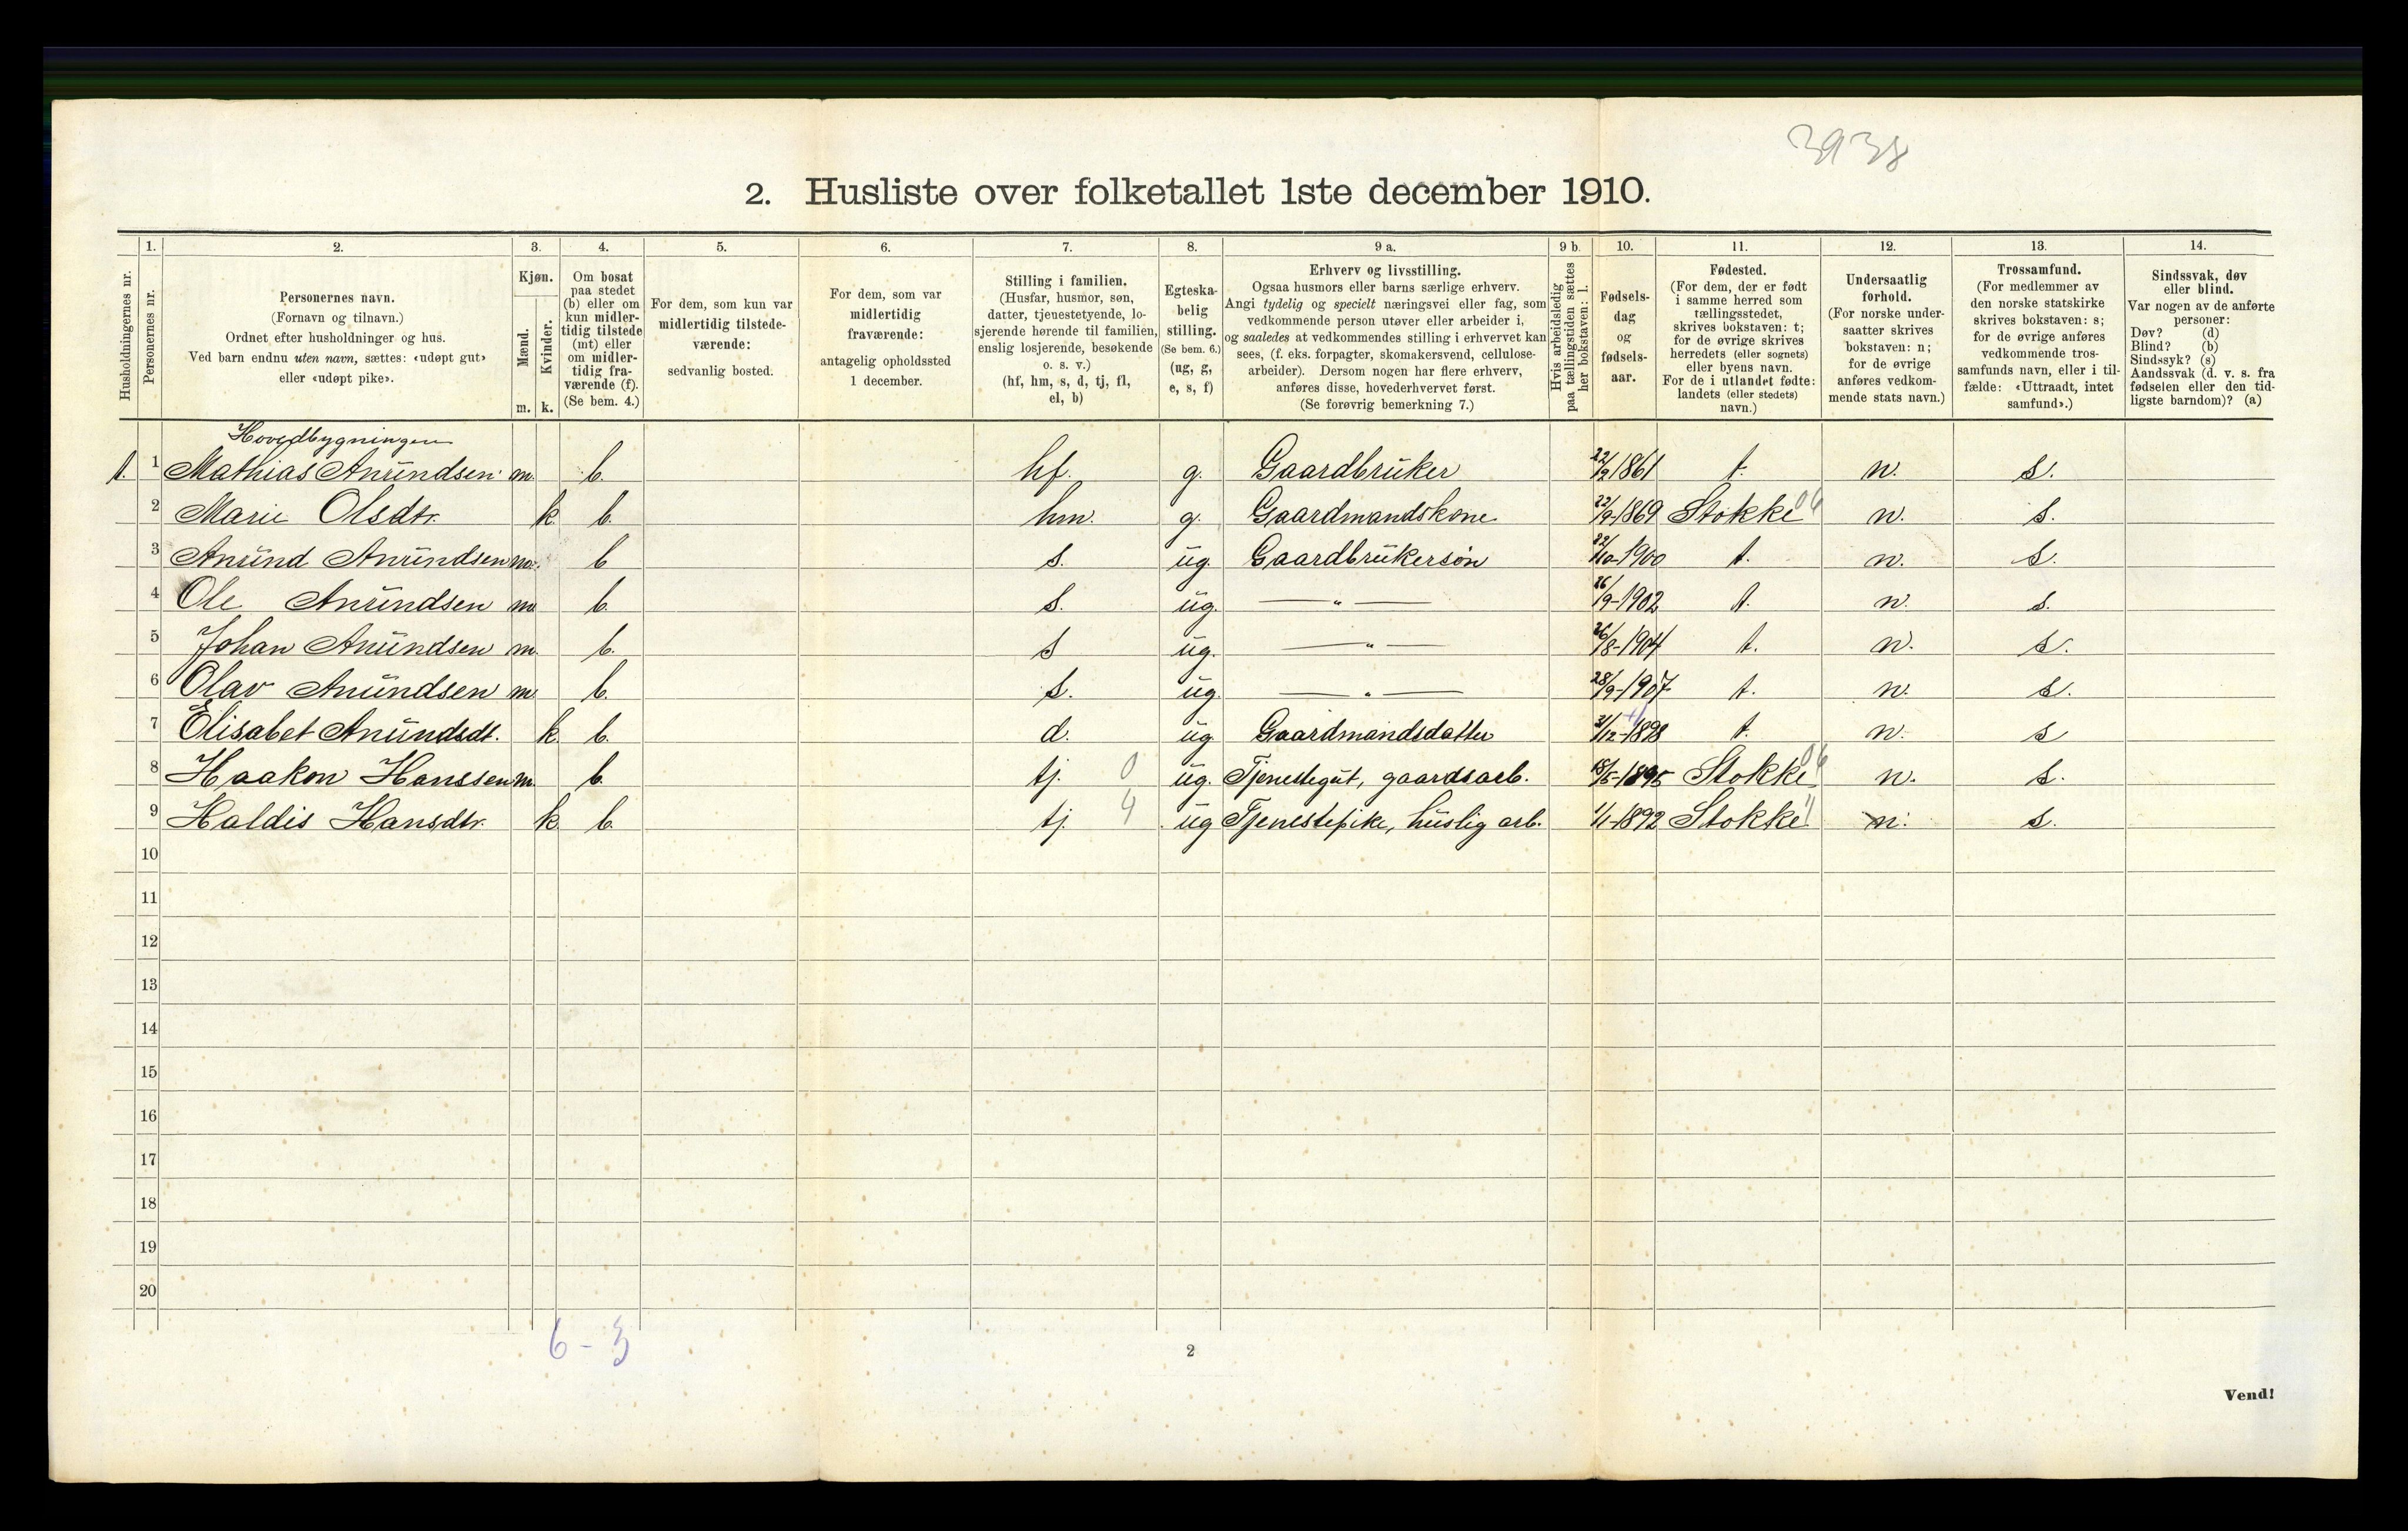 3938
2. Husliste over folketallet 1ste december 1910.
1. 2. 3. 4. 5. 6. 7. 8. 9 a. 9 b. 10. 11. 12. 13. 14.
Husholdningernes nr.
Personernes nr.
Personernes navn.
(Fornavn og tilnavn.)
Ordnet efter husholdninger og hus.
Ved barn endnu uten navn, sættes: «udøpt gut»
eller «udøpt pike».
Kjøn.
Mænd.
Kvinder.
m. k.
Om bosat
paa stedet
(b) eller om
kun midler-
tidig tilstede
(mt) eller
om midler-
tidig fra-
værende (f).
(Se bem. 4.)
For dem, som kun var
midlertidig tilstede-
værende:
sedvanlig bosted.
For dem, som var
midlertidig
fraværende:
antagelig opholdssted
1 december.
Stilling i familien.
(Husfar, husmor, søn,
datter, tjenestetyende, lo-
sjerende hørende til familien,
enslig losjerende, besøkende
o. s. v.)
(hf, hm, s, d, tj, fl,
el, b)
Egteska-
belig
stilling.
(Se bem. 6.)
(ug, g,
e, s, f)
Erhverv og livsstilling.
Ogsaa husmors eller barns særlige erhverv.
Angi tydelig og specielt næringsvei eller fag, som
vedkommende person utøver eller arbeider i,
og saaledes at vedkommendes stilling i erhvervet kan
sees, (f. eks. forpagter, skomakersvend, cellulose-
arbeider). Dersom nogen har flere erhverv,
anføres disse, hovederhvervet først.
(Se forøvrig bemerkning 7.)
Hvis arbeidsledig
paa tællingstiden sættes
her bokstaven: l.
Fødsels-
dag
og
fødsels-
aar.
Fødested.
(For dem, der er født
i samme herred som
tællingsstedet,
skrives bokstaven: t;
for de øvrige skrives
herredets (eller sognets)
eller byens navn.
For de i utlandet fødte:
landets (eller stedets)
navn.)
Undersaatlig
forhold.
(For norske under-
saatter skrives
bokstaven: n;
for de øvrige
anføres vedkom-
mende stats navn.)
Trossamfund.
(For medlemmer av
den norske statskirke
skrives bokstaven: s;
for de øvrige anføres
vedkommende tros-
samfunds navn, eller i til-
fælde: «Uttraadt, intet
samfund».)
Sindssvak, døv
eller blind.
Var nogen av de anførte
personer:
Døv? (d)
Blind? (b)
Sindssyk? (s)
Aandssvak (d. v. s. fra
fødselen eller den tid-
ligste barndom)? (a)
Hovedbygningen
1. 1 Mathias Anundsen m. b. hf. g. Gaardbruker 22/2 1861 t. n. s.
2 Marie Olsdtr. k. b. hm. g. Gaardmandskone 22/9-1869 Stokke 06 n. s.
3 Anund Anundsen m. b s. ug. Gaardbrukersön 22/10-1900 t. n. s.
4 Ole Anundsen m b. s. ug. — " — 26/9-1902 t. n. s.
5 Johan Anundsen m. b. s ug. — " — 26/8-1904 t. n. s.
6 Olav Anundsen m b. s. ug. — " — 28/9-1907 t. n. s.
7 Elisabet Anundsdt. k. b. d. ug Gaardmandsdatter 31/12-1898 t. n. s
8 Haakon Hanssen m. b. tj. 0 ug. Tjenestegut, gaardsarb. 18/5-1895 Stokke 06 n. s.
9 Haldis Hansdtr. k. b. tj. 4 ug Tjenestepike, huslig arb. 1/1-1892 Stokke " n. s.
10
11
12
13
14
15
16
17
18
19
20
6 - 3
2
Vend!